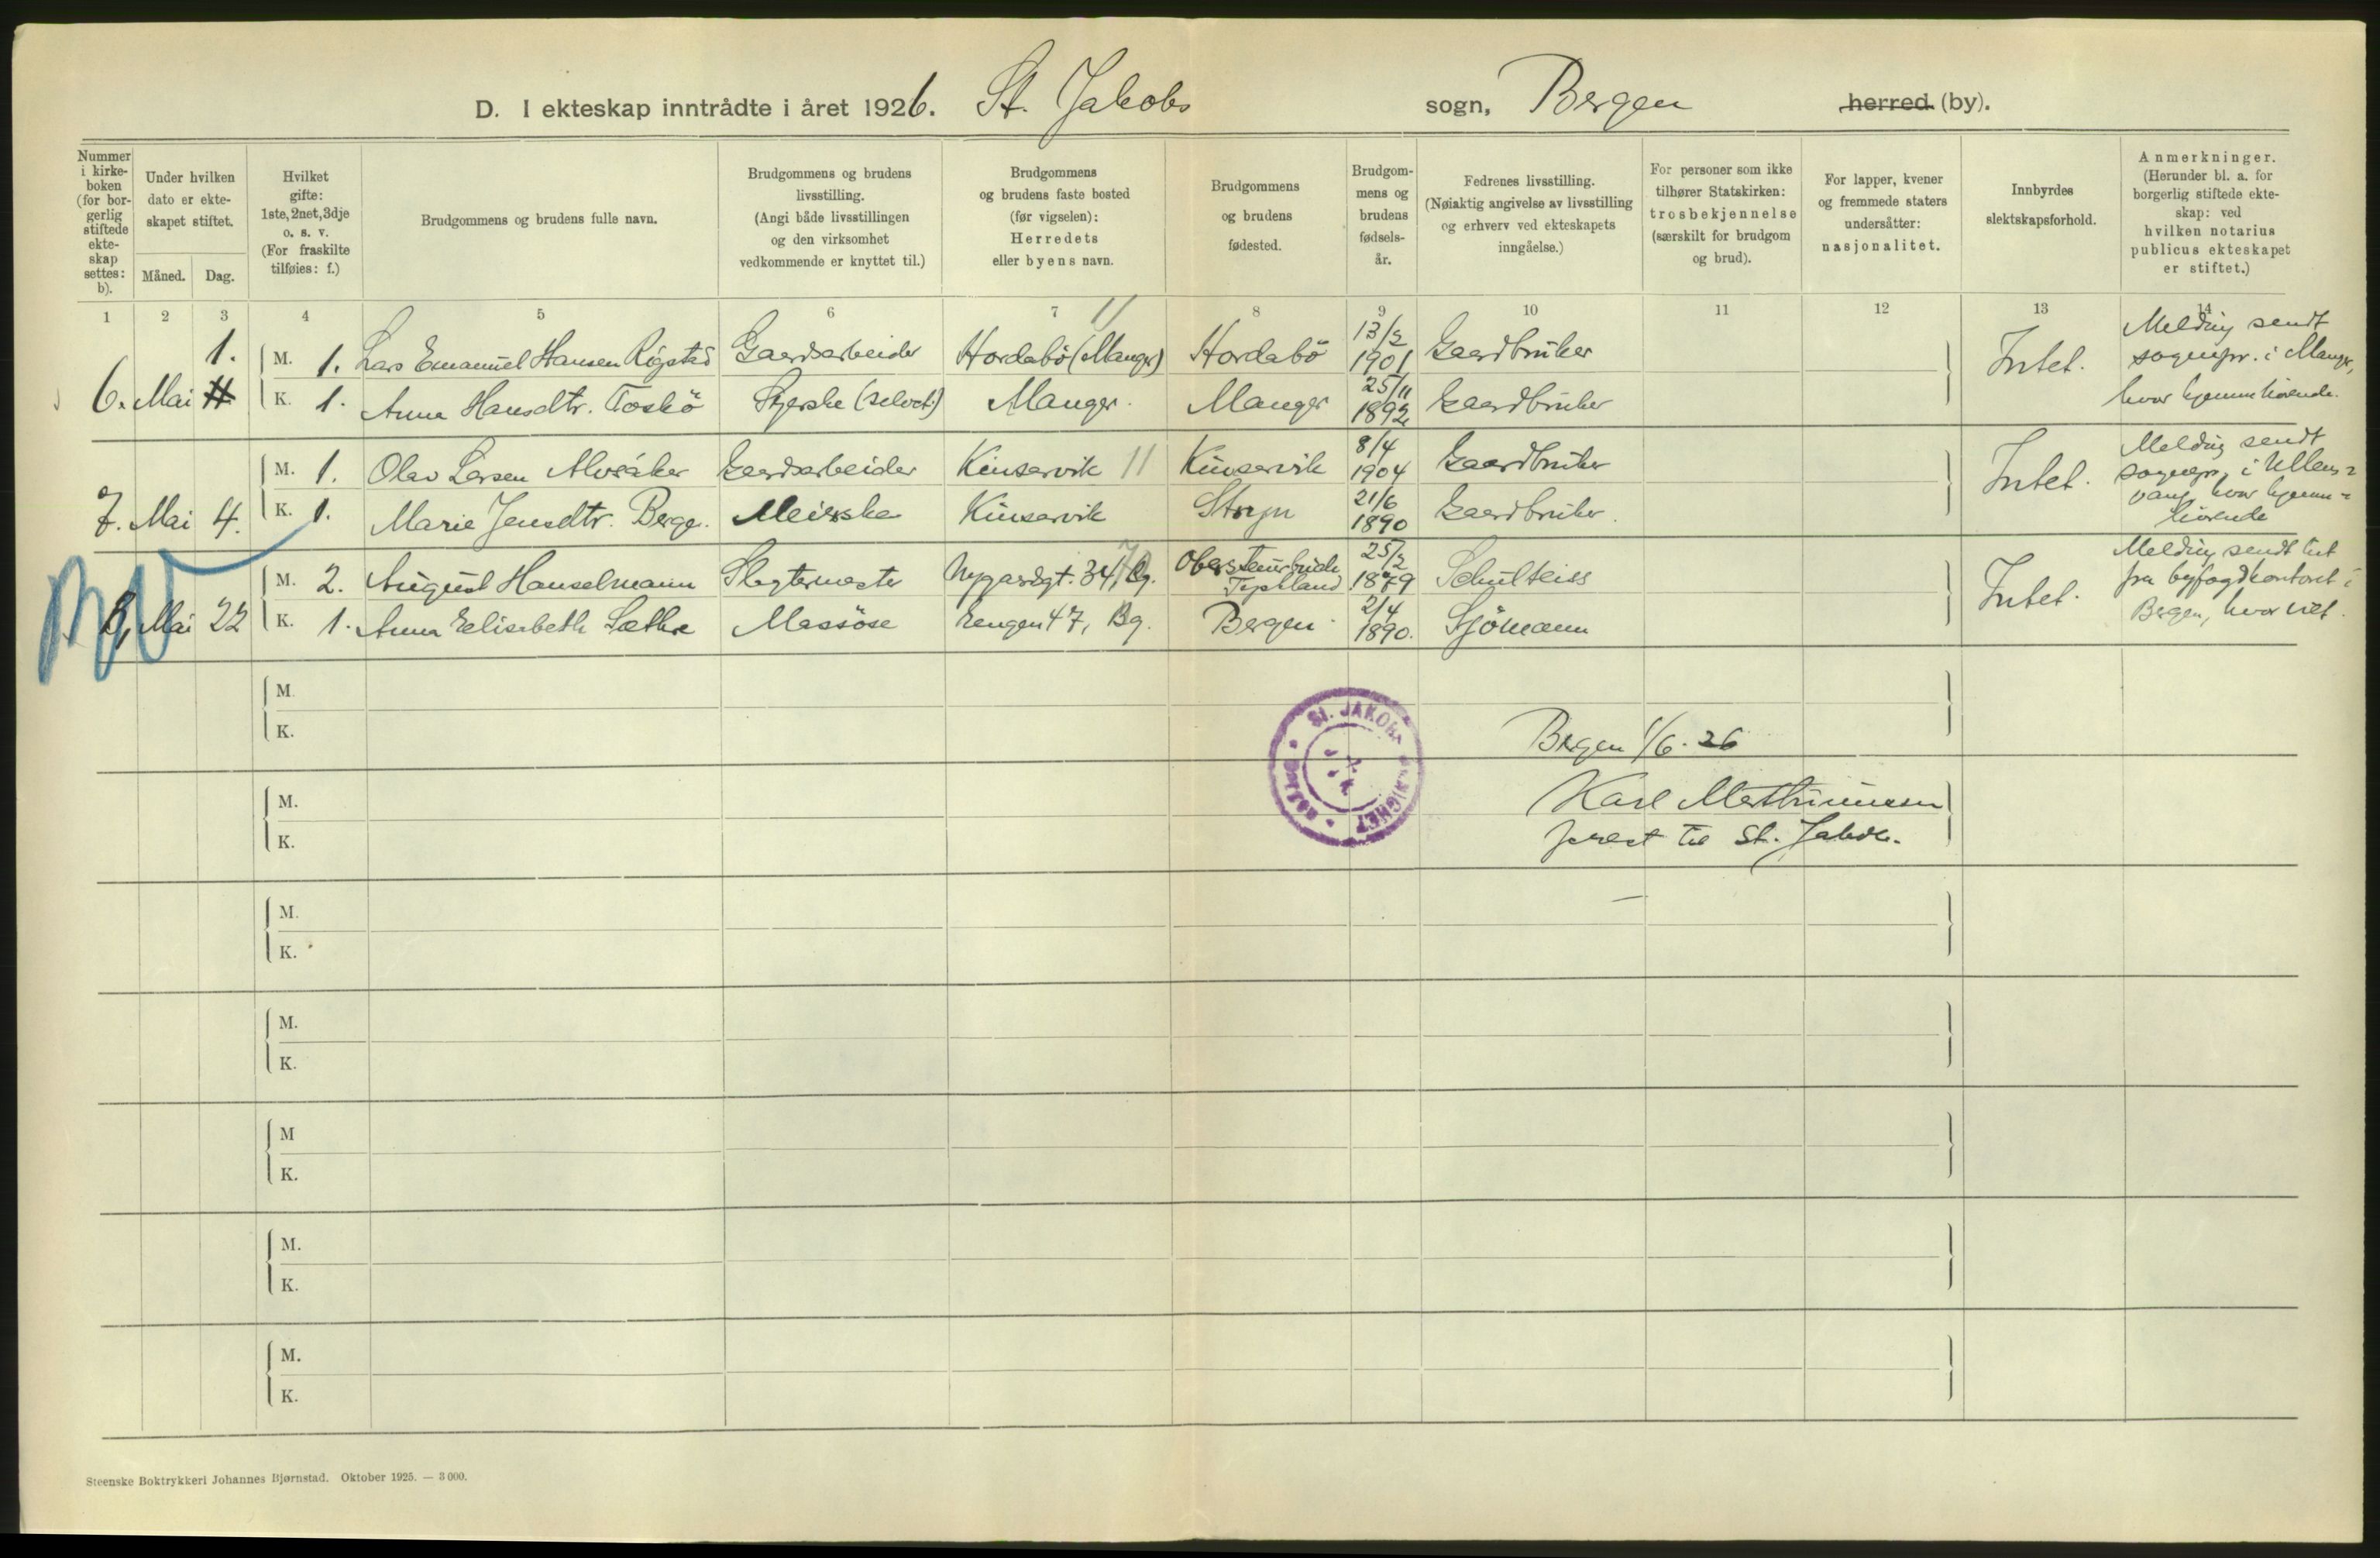 D. I ekteskap inntrådte i året 1926. St. Jakobs sogn, Bergen herred (by).
Nummer i kirkeboken (for borgerlig stiftede ekteskap settes: b).
Under hvilken dato er ekteskapet stiftet.
Måned. Dag.
Hvilket gifte: 1ste, 2net, 3dje o. s. v. (For fraskilte tilføies: f.)
Brudgommens og brudens fulle navn.
Brudgommens og brudens livsstilling. (Angi både livsstillingen og den virksomhet vedkommende er knyttet til.)
Brudgommens og brudens faste bosted (før vigselen): Herredets eller byens navn.
Brudgommens og brudens fødested.
Brudgommens og brudens fødselsår.
Fedrenes livsstilling. (Nøiaktig angivelse av livsstilling og erhverv ved ekteskapets inngåelse.)
For personer som ikke tilhører Statskirken: trosbekjennelse (særskilt for brudgom og brud).
For lapper, kvener og fremmede staters undersåtter: nasjonalitet.
Innbyrdes slektskapsforhold.
Anmerkninger. (Herunder bl. a. for borgerlig stiftede ekteskap: ved hvilken notarius publicus ekteskapet er stiftet.)
1 2 3 4 5 6 7 8 9 10 11 12 13 14
1. M. 1. Lars Emanuel Hansen Rigstad Gaardsarbeider Hordabö (Manger) 11 Hordabö 13/2 1901 Gaardbruker
6. Mai K. 1. Anna Hansdtr. Toskö Syerske (selvst.) Manger. Manger 25/11 1892 Gaardbruker
Intet.
Melding sendt
sognepr. i Manger,
hvor hjemmehörende.
M. 1. Olav Larsen Alvsåker Gaardsarbeider Kinservik 11 Kinservik 8/4 1904 Gaardbruker
7. Mai 4. K. 1. Marie Jensdtr. Berge. Meierske Kinservik Stryn 21/6 1890 Gaardbruker.
Intet.
Melding sendt
sognepr. i Ullens=
vang, hvor hjemme=
hörende
M. 2. August Hanselmann Slagtermester Nygaardsgt. 34, Bg. Tyskland 25/2 1879 Schulteiss
8, Mai 22 K. 1. Anna Elisabeth Sæthre Massöse Engen 47, Bg. Bergen. 2/4 1890. Sjömann
Intet.
Melding sendt
fra byfogdkontoret i
Bergen, hvor viet.
M.
K.
ST. JAKOBS MENIGHET BERGEN
Bergen 1/6. 26
M.
K.
Karl
prest til St. Jakob.
M.
K.
M.
K.
M
K.
M.
K.
M.
K.
Steenske Boktrykkeri Johannes Bjørnstad. Oktober 1925. — 3 000.